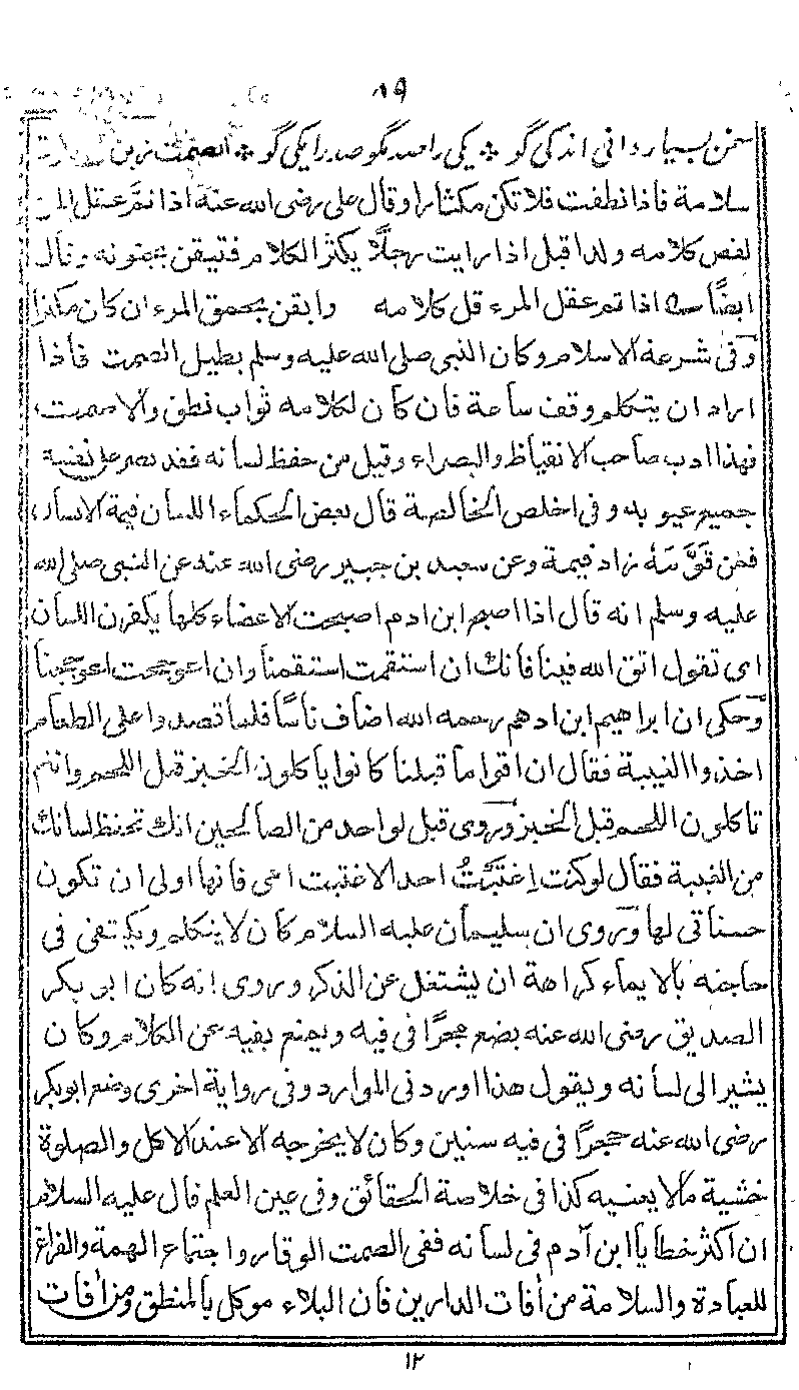 ٨٩
سخن بسيار دانى اندكى گو ❖ يكى را صد مگو صد را يكى گو ❖ الصمت زين
سلامة فاذا نطقت فلا تكن مكثارا وقال على رضى الله عنه اذا تم عقل المرء
نقص كلامه ولذا قيل اذا رايت رجلًا يكثر الكلام فتيقن بجنونه وقال
ايضًا اذا تم عقل المرء قل كلامه وايقن بحمق المرء ان كان مكثرا
وفى شرعة الاسلام وكان النبى صلى الله عليه وسلم يطيل الصمت فاذا
اراد ان يتكلم وقف ساعة فان كان لكلامه ثواب نطق والا صمت
فهذا ادب صاحب الانقياظ والبصراء وقيل من حفظ لسانه فقد ستر على نفسه
جميع عيوبه وفى اخلص الخالصة قال بعض الحكماء اللسان قيمة الانسان
فمن قَوَّمَهُ زاد قيمة وعن سعيد بن جبير رضى الله عنه عن النبى صلى الله
عليه وسلم انه قال اذا اصبح ابن ادم اصبحت الاعضاء كلها يكفرن اللسان
اى تقول اتق الله فينا فانك ان استقمت استقمنا وان اعوججت اعوججنا
وحكى ان ابراهيم ابن ادهم رحمه الله اضاف ناسًا فلما قعدوا على الطعام
اخذوا الغيبة فقال ان اقواما قبلنا كانوا ياكلون الخبز قبل اللحم وانتم
تاكلون اللحم قبل الخبز وروى قيل لواحد من الصالحين انك تحفظ لسانك
من الغيبة فقال لو كنت اِغتَبْتُ احد الاغتبت امى فانها اولى ان تكون
حسناتى لها وروى ان سليمان عليه السلام كان لا يتكلم ويكتفى فى
حاجته بالايماء كراهة ان يشتغل عن الذكر وروى انه كان ابو بكر
الصديق رضى الله عنه يضع حجرًا فى فيه ويمنع بفيه عن الكلام وكان
يشير الى لسانه ويقول هذا اوردنى الموارد وفى رواية اخرى وضع ابوبكر
رضى الله عنه حجرًا فى فيه سنين وكان لا يخرجه الا عند الاكل والصلوة
خشية مالا يعنيه كذا فى خلاصة الحقائق وفى عين العلم قال عليه السلام
ان اكثر خطايا ابن آدم فى لسانه ففى الصمت الوقار واجتماع الهمة والفراغ
للعبادة والسلامة من أفات الدارين فان البلاء موكل بالمنطق ومن أفات
١٢